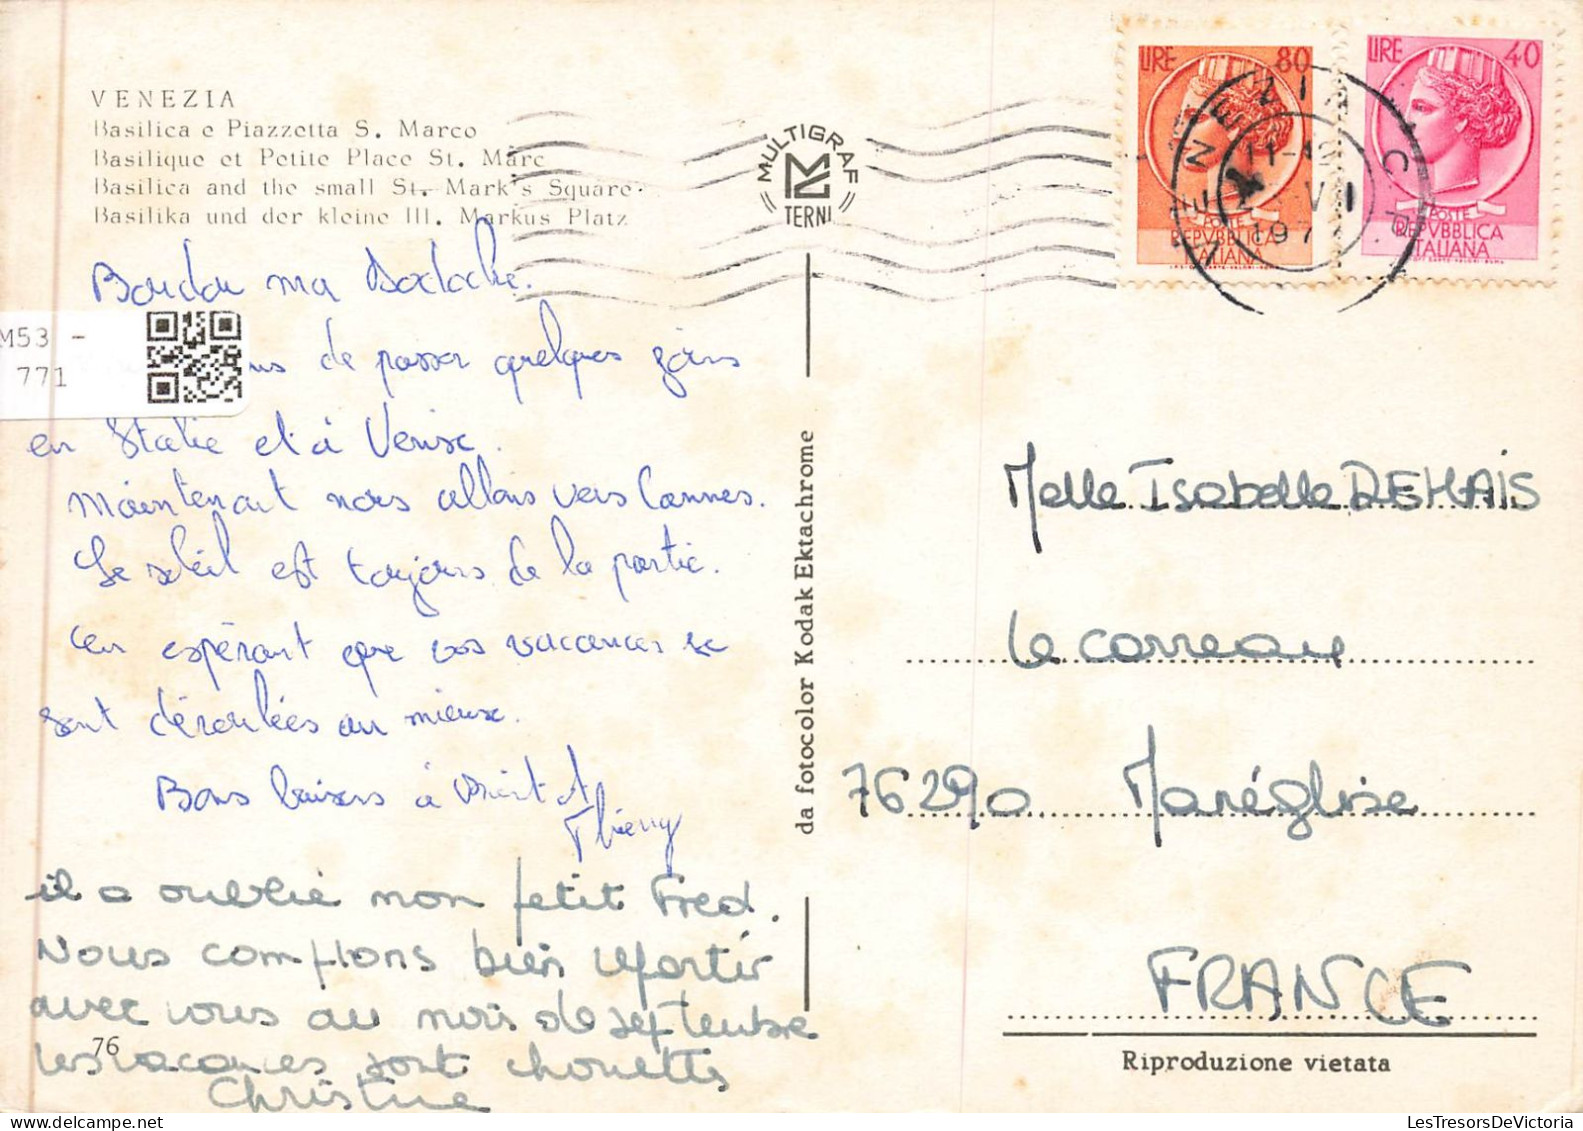 VENEZIA
Basilica e Piazzetta S. Marco
Basilique et Petite Place St. Marc
Basilica and the small St. Mark's Square
Basilika und der kleine Hl. Markus Platz
MULTIGRAF
TERNI
LIRE 80
LIRE 40
POSTE
REPVBBLICA
ITALIANA
POSTE
REPVBBLICA
ITALIANA
VENEZIA
197
M53 -
771
ma
de passer quelques jours
en Italie et à Venise.
Maintenant nous allons vers Cannes.
Le soleil est toujours de la partie.
en espérant que vos vacances se
sont déroulées au mieux.
Bons baisers à
Thierry
il a oublié mon petit Fred.
Nous comptons bien repartir
avec vous au mois de septembre
les vacances sont chouettes
Christine
76
da fotocolor Kodak Ektachrome
Melle Isabelle DEHAIS
le carreau
76290 Manéglise
FRANCE
Riproduzione vietata
LesTresorsDeVictoria.com